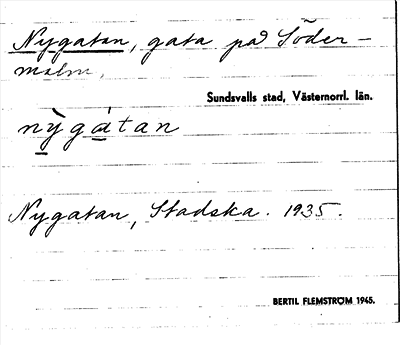 Nygatan, gata på Söder-
malm,
Sundsvalls stad, Västernorrl. län.
nỳgátan
Nygatan, Stadska. 1935.
BERTIL FLEMSTRÖM 1945.